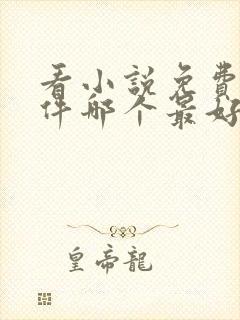 看小说免费
件哪个最好
皇帝龍